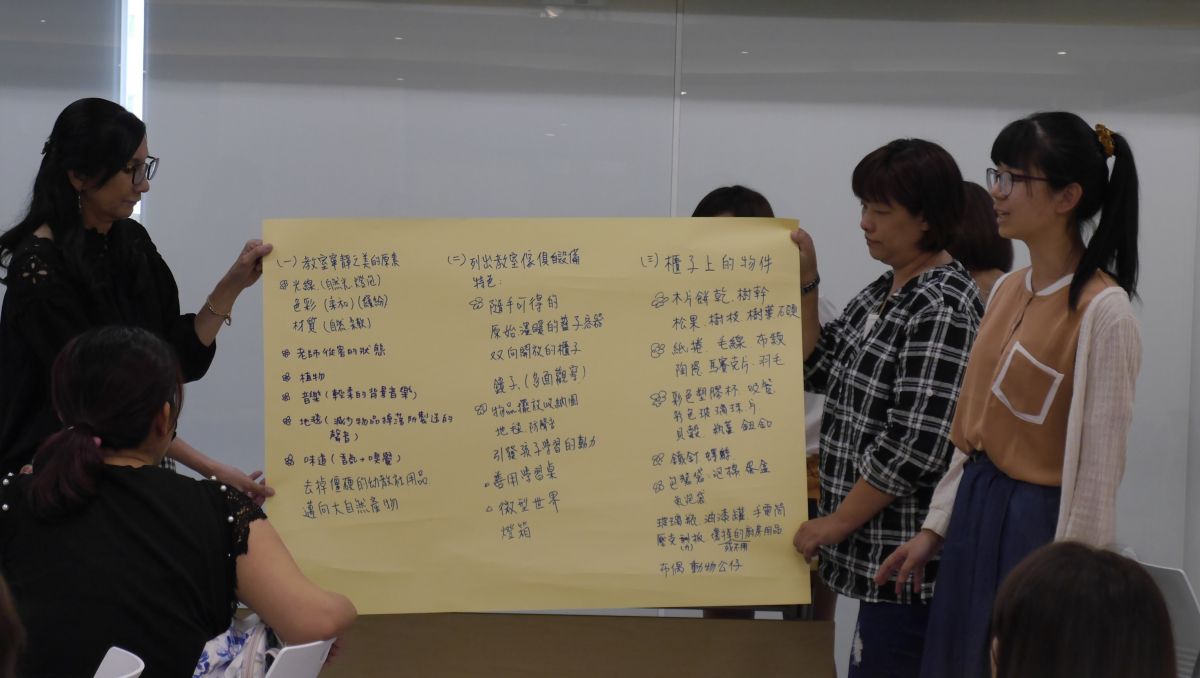 (一) 教室寧靜之美的原素
光線 (自然光.燈泡)
色彩 (柔和) (繽紛)
材質 (自然.柔軟)
老師從容的狀態
植物
音樂 (輕柔的背景音樂)
地毯 (減少物品掉落所製造的
聲音)
味道 (言説→嗅覺)
去掉僵硬的幼教社用品
邁向大自然產物
(二) 列出教室傢俱設備
特色:
隨手可得的
原始溫暖的籃子容器
双向開放的櫃子
鏡子.(多面觀察)
物品擺放收納圖
地毯.防聲音
引發孩子學習的動力
善用學習桌
微型世界
燈箱
(三) 櫃子上的物件
木片餅乾.樹幹
松果.樹枝.樹葉石頭
紙捲.毛線.布類
陶瓷.馬賽克片.羽毛
彩色塑膠杯.吸管
彩色玻璃珠.片
貝殼.瓶蓋.鈕釦
鐵釘 螺絲
包裝袋.泡棉.
氣泡袋
玻璃瓶 油漆罐 手電筒
壓克力板 壞掉的廚房用品
或不用
布偶 動物公仔